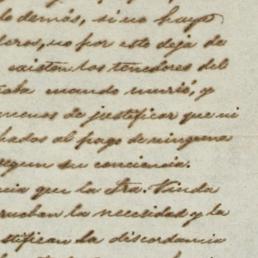 lo demás, si no haya
deros, no por esto deja de
existen los tenedores del
taba cuando murió, y
menos de justificar que ni
hados al pago de ninguna
según su conciencia.
cia que la Sra. Viuda
prueban la necesidad y la
stifican la discordancia